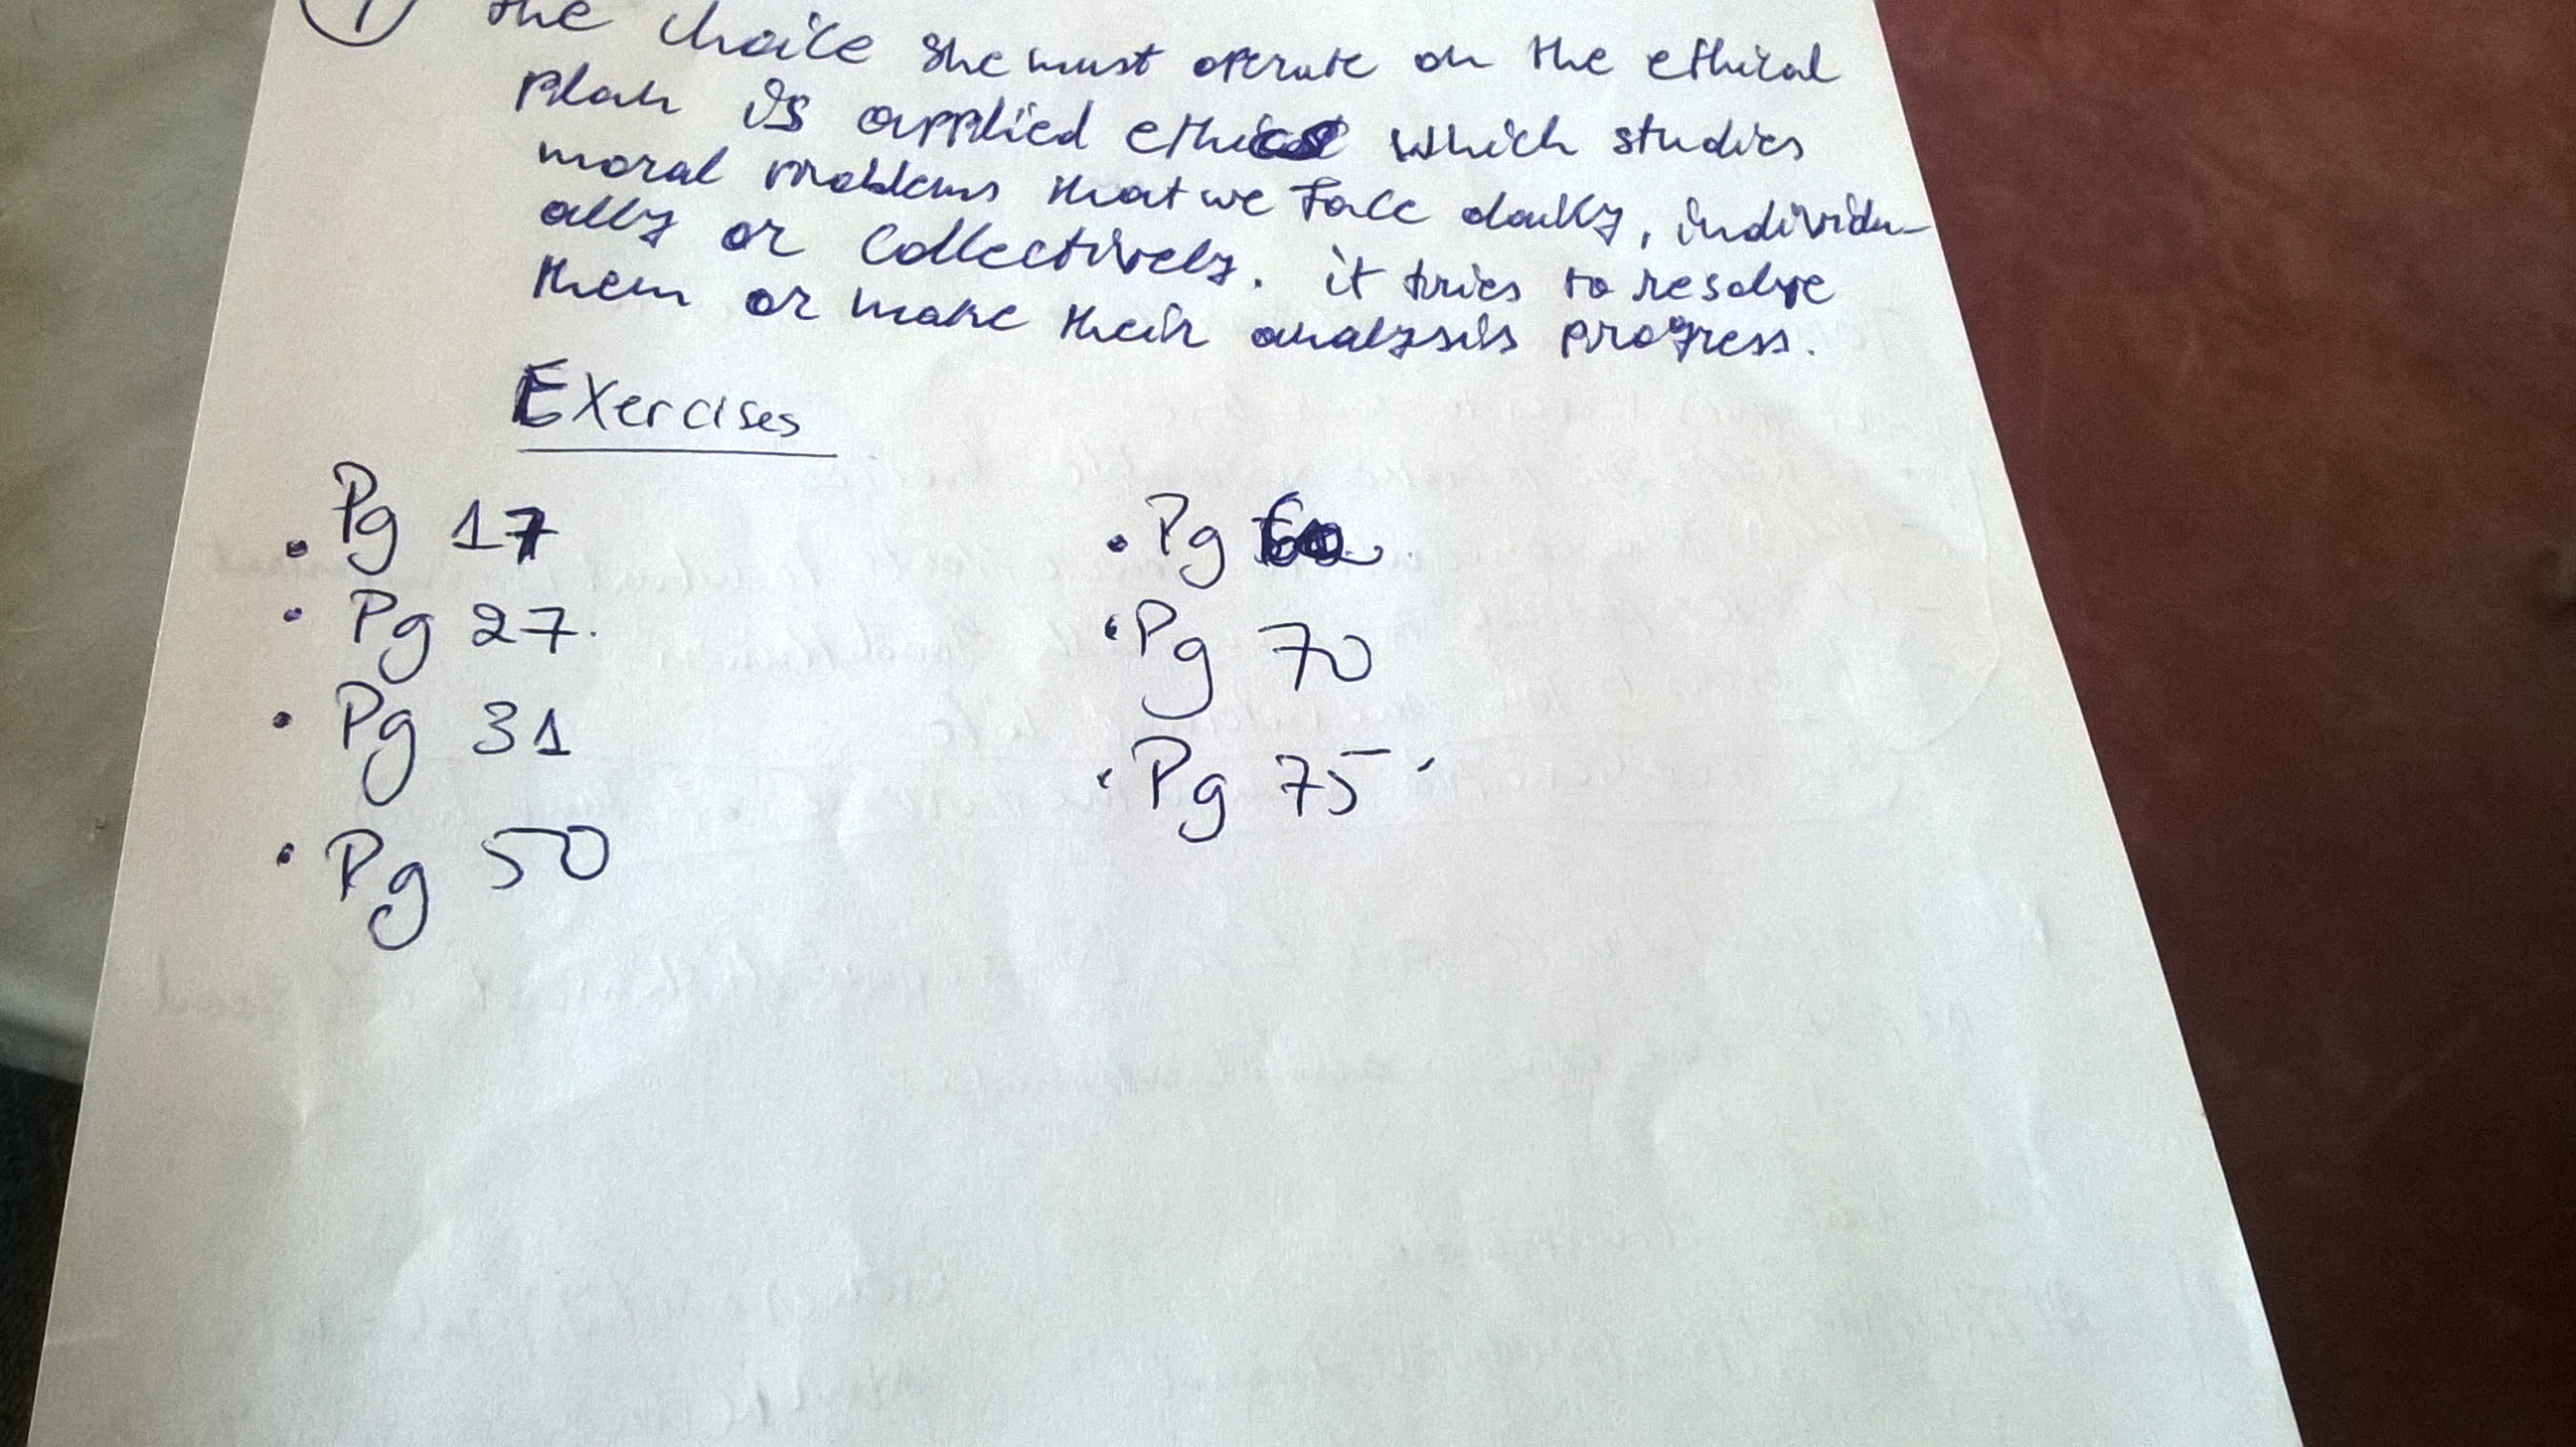 1 the choice she must operate on the ethical
plan is applied ethics which studies
moral problems that we face daily, individu-
ally or collectively. it tries to resolve
them or make their analysis progress.
Exercises
• Pg 17
• Pg 27.
• Pg 31
• Pg 50
• Pg
• Pg 70
• Pg 75